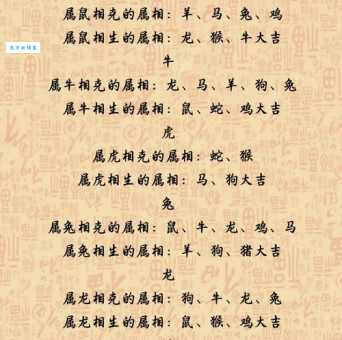 属鼠相克的属相：羊、马、兔、鸡
属鼠相生的属相：龙、猴、牛大吉
牛
属牛相克的属相：龙、马、羊、狗、兔
属牛相生的属相：鼠、蛇、鸡大吉
虎
属虎相克的属相：蛇、猴
属虎相生的属相：马、狗大吉
兔
属兔相克的属相：鼠、牛、龙、鸡、马
属兔相生的属相：羊、狗、猪大吉
龙
属龙相克的属相：狗、牛、龙、兔
属龙相生的属相：鼠、猴、鸡大吉